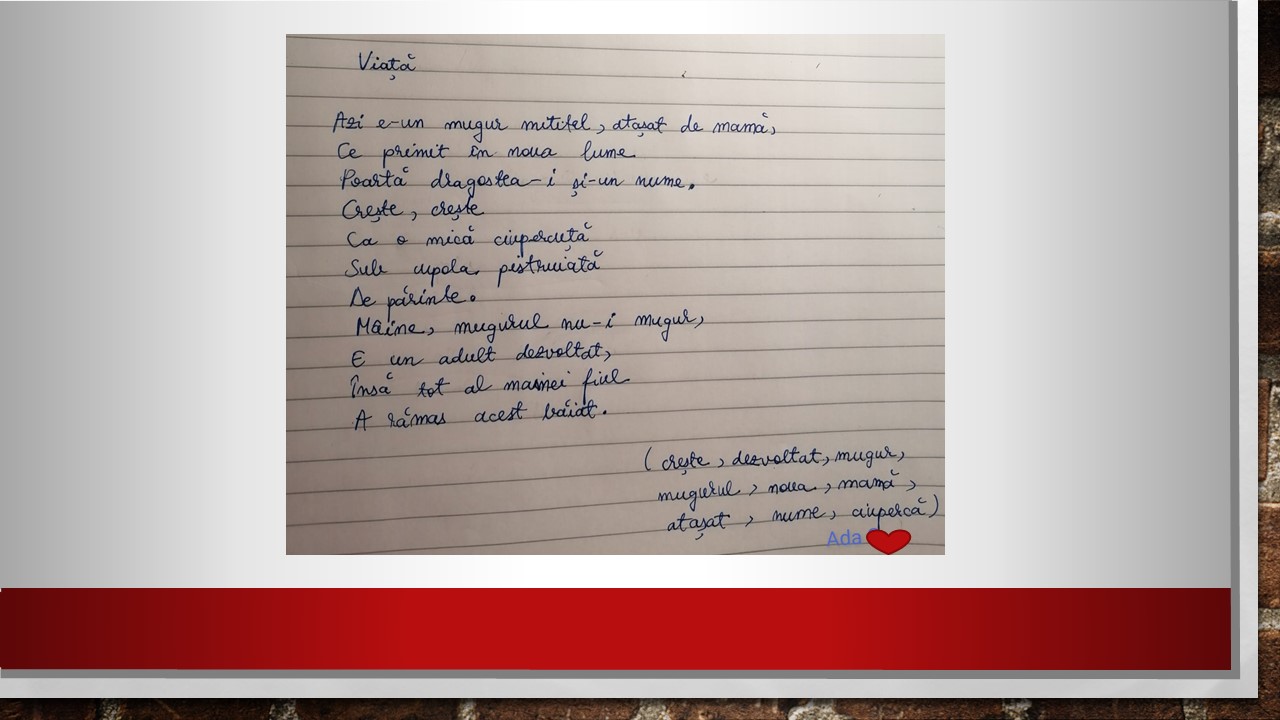 Viață
Azi e-un mugur mititel, atașat de mamă,
Ce primit în noua lume
Poartă dragostea-i și-un nume.
Crește, crește
Ca o mică ciupercuță
Sub cupola pistruiată
De părinte.
Mâine, mugurul nu-i mugur,
E un adult dezvoltat,
Însă tot al mamei fiul
A rămas acest băiat.
(crește, dezvoltat, mugur,
mugurul, noua, mamă,
atașat, nume, ciupercă)
Ada